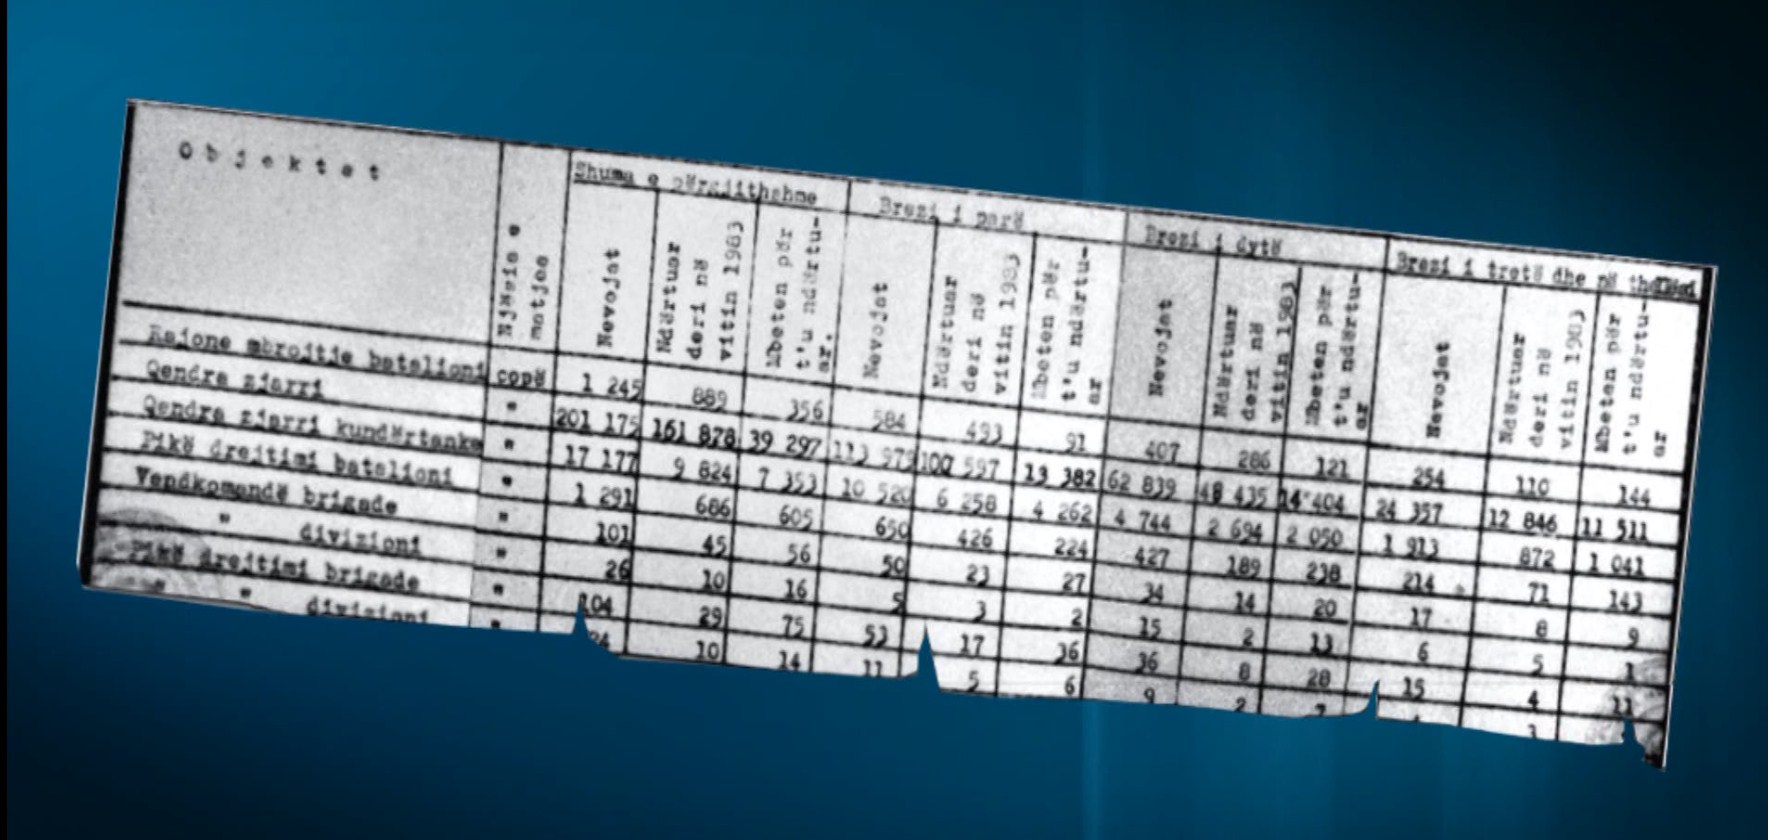 Objektet
Njësia e
matjes
Shuma e përgjithshme
Brezi i parë
Brezi i dytë
Brezi i tretë dhe në
Nevojat
Ndërtuar
deri në
vitin 1983
Mbeten për
t'u ndërtu-
ar.
Nevojat
Ndërtuar
deri në
vitin 1983
Mbeten për
t'u ndërtu-
ar
Nevojat
Ndërtuar
deri në
vitin 1983
Mbeten për
t'u ndërtu-
ar
Nevojat
Ndërtuar
deri në
vitin 1983
Mbeten për
t'u ndërtu-
ar
Rajone mbrojtje batalioni copë 1 245 889 356 584 493 91 407 286 121 254 110 144
Qendra zjarri " 201 175 161 878 39 297 113 979 100 597 13 382 62 839 48 435 14 404 24 357 12 846 11 511
Qendra zjarri kundërtanke " 17 177 9 824 7 353 10 520 6 258 4 262 4 744 2 694 2 050 1 913 872 1 041
Pikë drejtimi batalioni " 1 291 686 605 650 426 224 427 189 238 214 71 143
Vendkomandë brigade " 101 45 56 50 23 27 34 14 20 17 8 9
" divizioni " 26 10 16 5 3 2 15 2 13 6 5 1
Pikë drejtimi brigade " 104 29 75 53 17 36 36 8 28 15 4 11
" " divizioni " 10 14 11 5 6 9 2 7 3